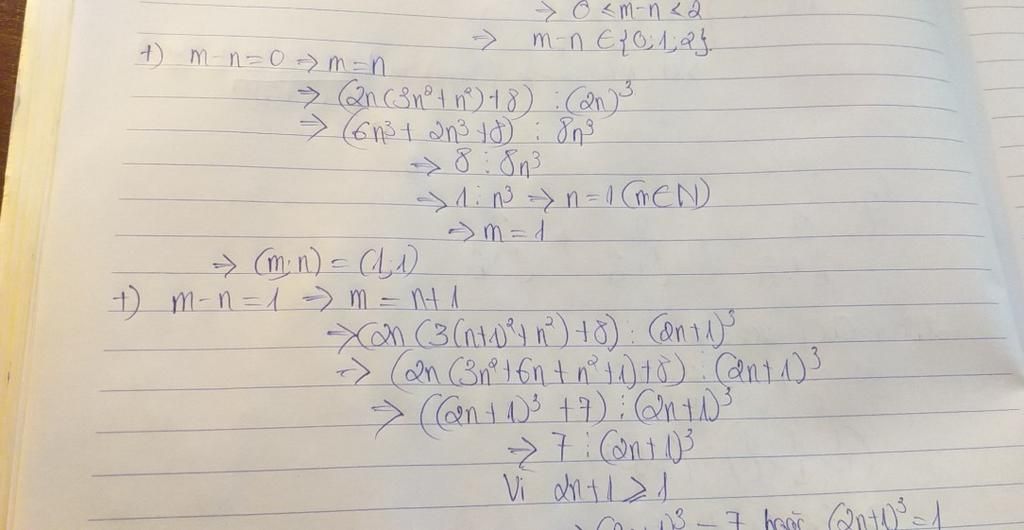 ⇒ 0 ≤ m-n ≤ 2
⇒ m-n ∈ {0; 1; 2}.
+) m-n=0 ⇒ m=n
⇒ (2n(3n²+n²)+8) ⋮ (2n)³
⇒ (6n³+2n³+8) ⋮ 8n³
⇒ 8 ⋮ 8n³
⇒ 1 ⋮ n³ ⇒ n=1 (m∈N)
⇒ m=1
⇒ (m;n) = (1;1)
+) m-n=1 ⇒ m = n+1
⇒ (2n(3(n+1)²+n²)+8) ⋮ (2n+1)³
⇒ (2n(3n²+6n+n²+1)+8) ⋮ (2n+1)³
⇒ ((2n+1)³+7) ⋮ (2n+1)³
⇒ 7 ⋮ (2n+1)³
Vì 2n+1 ≥ 1
= 7 hoặc (2n+1)³=1